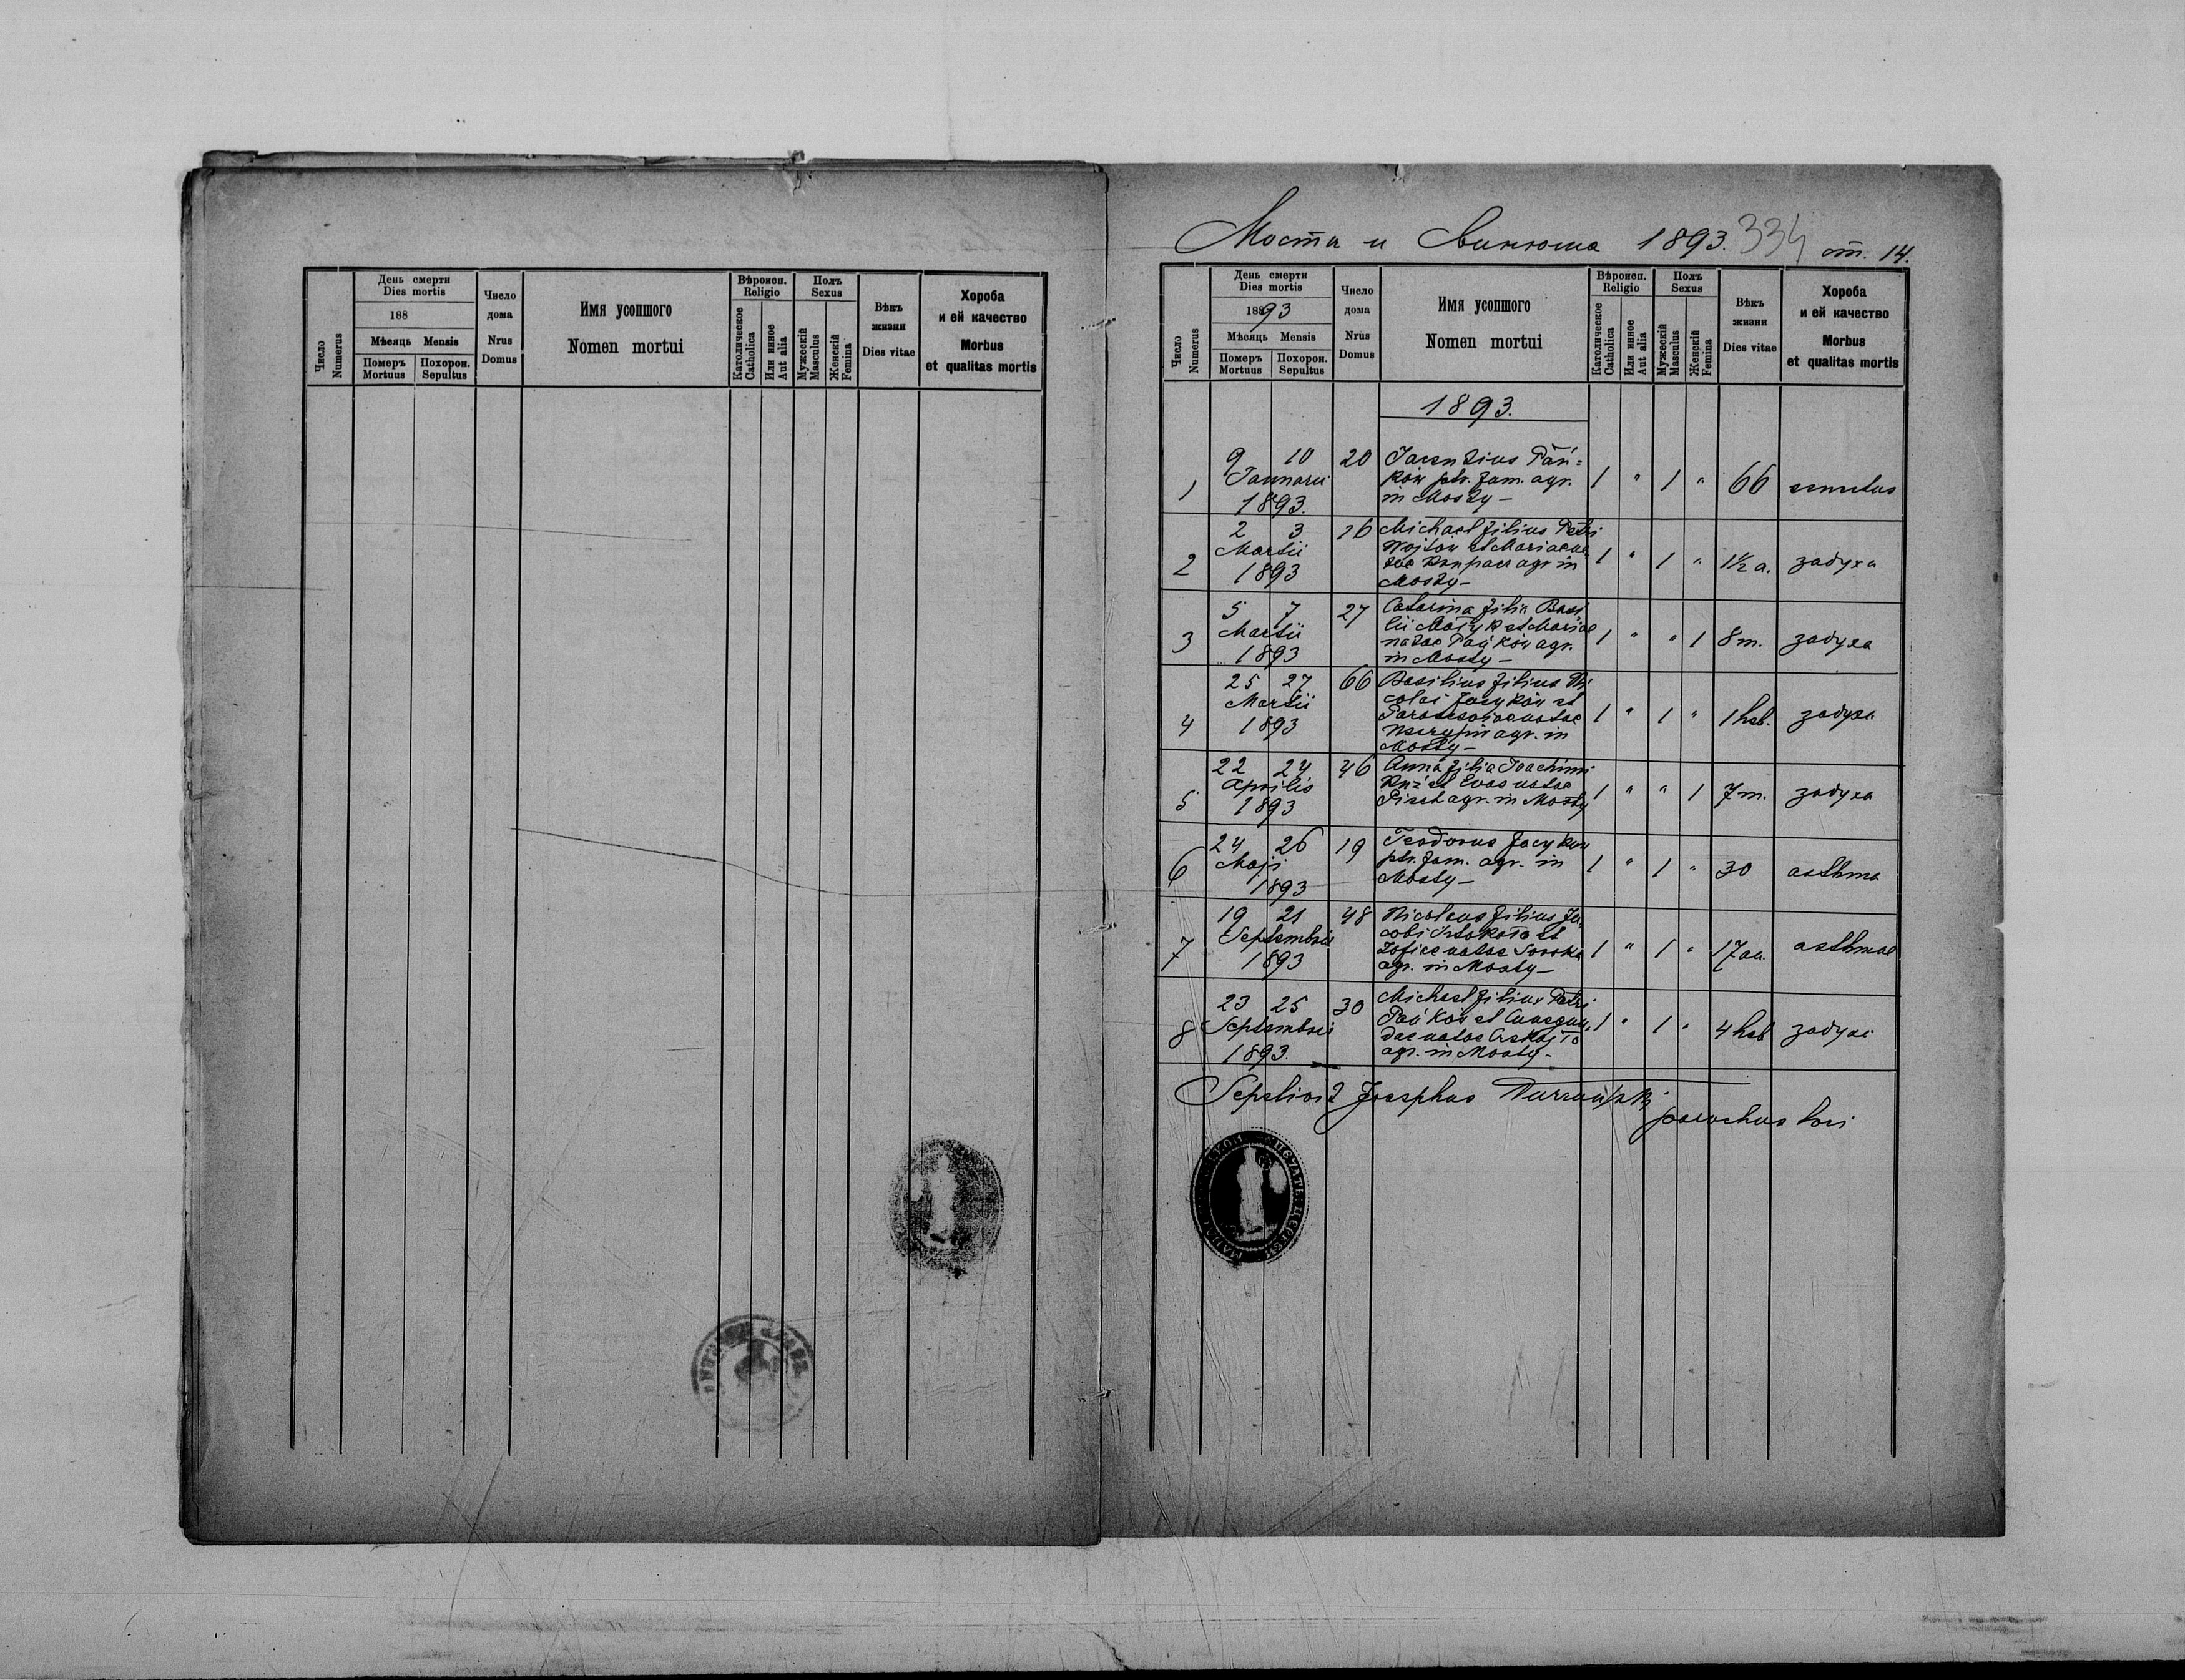 День смерти
Dies mortis
188
Мѣсяць Mensis
Померъ Похорон.
Mortuus Sepultus
Число
Numerus
Число
дома
Nrus
Domus
Имя усопшого
Nomen mortui
Вѣроисп.
Religio
Католическое
Catholica
Или инное
Aut alia
Полъ
Sexus
Мужескій
Masculus
Женскій
Femina
Вѣкъ
жизни
Dies vitae
Хороба
и ей качество
Morbus
et qualitas mortis
Мости и 1893. 334 ст. 14.
День смерти
Dies mortis
1893
Мѣсяць Mensis
Померъ Похорон.
Mortuus Sepultus
Число
Numerus
Число
дома
Nrus
Domus
Имя усопшого
Nomen mortui
Вѣроисп.
Religio
Католическое
Catholica
Или инное
Aut alia
Полъ
Sexus
Мужескій
Masculus
Женскій
Femina
Вѣкъ
жизни
Dies vitae
Хороба
и ей качество
Morbus
et qualitas mortis
1893.
1 9 10 20 1 " 1 " 66
Januarii
ków ptr. fam. agr.
1893. in Mosty –
2 2 3 16 Michael filius Petri 1 " 1 " 1½ a. задуха
Martii Wojtów et Mariae
1893 agr. in
Mosty –
3 5 7 27 Catarina filia Basi 1 " " 1 8 m. задуха
Martii lii et Mariae
1893 natae agr.
in Mosty –
4 25 27 66 Basilius filius Ni 1 " 1 " 1 heb. задуха
Martii colai Jacyków et
1893 natae
agr. in
Mosty –
5 22 24 46 Anna filia Joachimi 1 " " 1 7 m. задуха
Aprilis et Evae natae
1893 agr. in Mosty
6 24 26 19 Teodorus Jacyków 1 " 1 " 30 asthma
Maji ptr. fam. agr. in
1893 Mosty –
7 19 21 48 Nicolaus filius Ja 1 " 1 " 17 aa. asthmae
Septembris cobi et
1893 Zofiae natae Soroka
agr. in Mosty –
8 23 25 30 Michael filius Petri 1 " 1 " 4 heb задуха
Septembris et Cunegun
1893. dae natae
agr. in Mosty –
Sepelivit Josephus
parochus loci